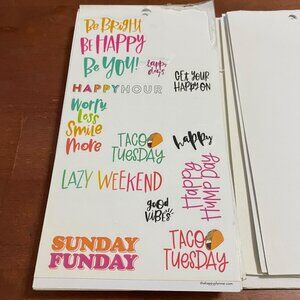 Be BRIGHT
BE HAPPY
Be YOU!
happy
days
GET YOUR
HAPPY ON
HAPPYHOUR
Worry
Less
Smile
More
TACO
TUESDAY
happy
LAZY WEEKEND
Happy
HUMP DAY
good
VIBES
SUNDAY
FUNDAY
TACO
TUESDAY
thehappyplanner.com